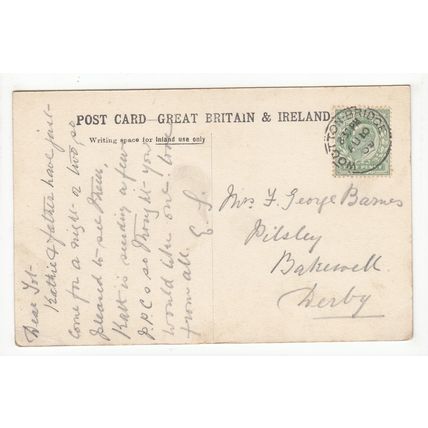 POST CARD—GREAT BRITAIN & IRELAND
Writing space for Inland use only
Dear Tot-
Kathie & father have just
come for a night or two, so
pleased to see them,
Kath is sending a few
P.P.Cs so thought you
would like one love
from all. E S.
Mrs F. George Barnes
Pilsley
Bakewell.
Derby
WORTON-BRIDGE
AU 19
09